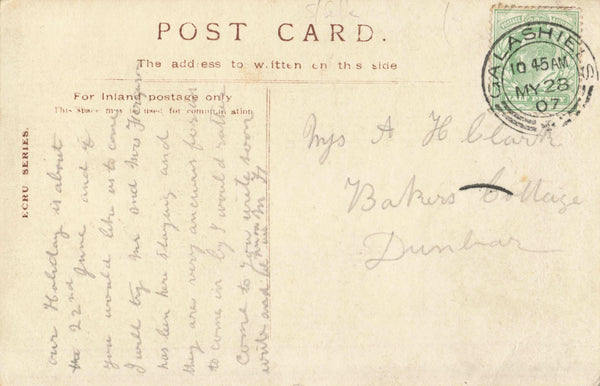 POST CARD.
The address to written on this side
For Inland postage only
This space may used for communication
ECRU SERIES.
GALASHIELS
10 45 AM
MY 28
07
Mrs A H Clark
Bakers Cottage
Dunbar
our Holiday is about
the 22nd June and if
you would like us to come
I will try Mr and Mrs Ferguson
has been here staying and
they are very anxious for us
to come in by I would rather
Come to you write soon
write and let me